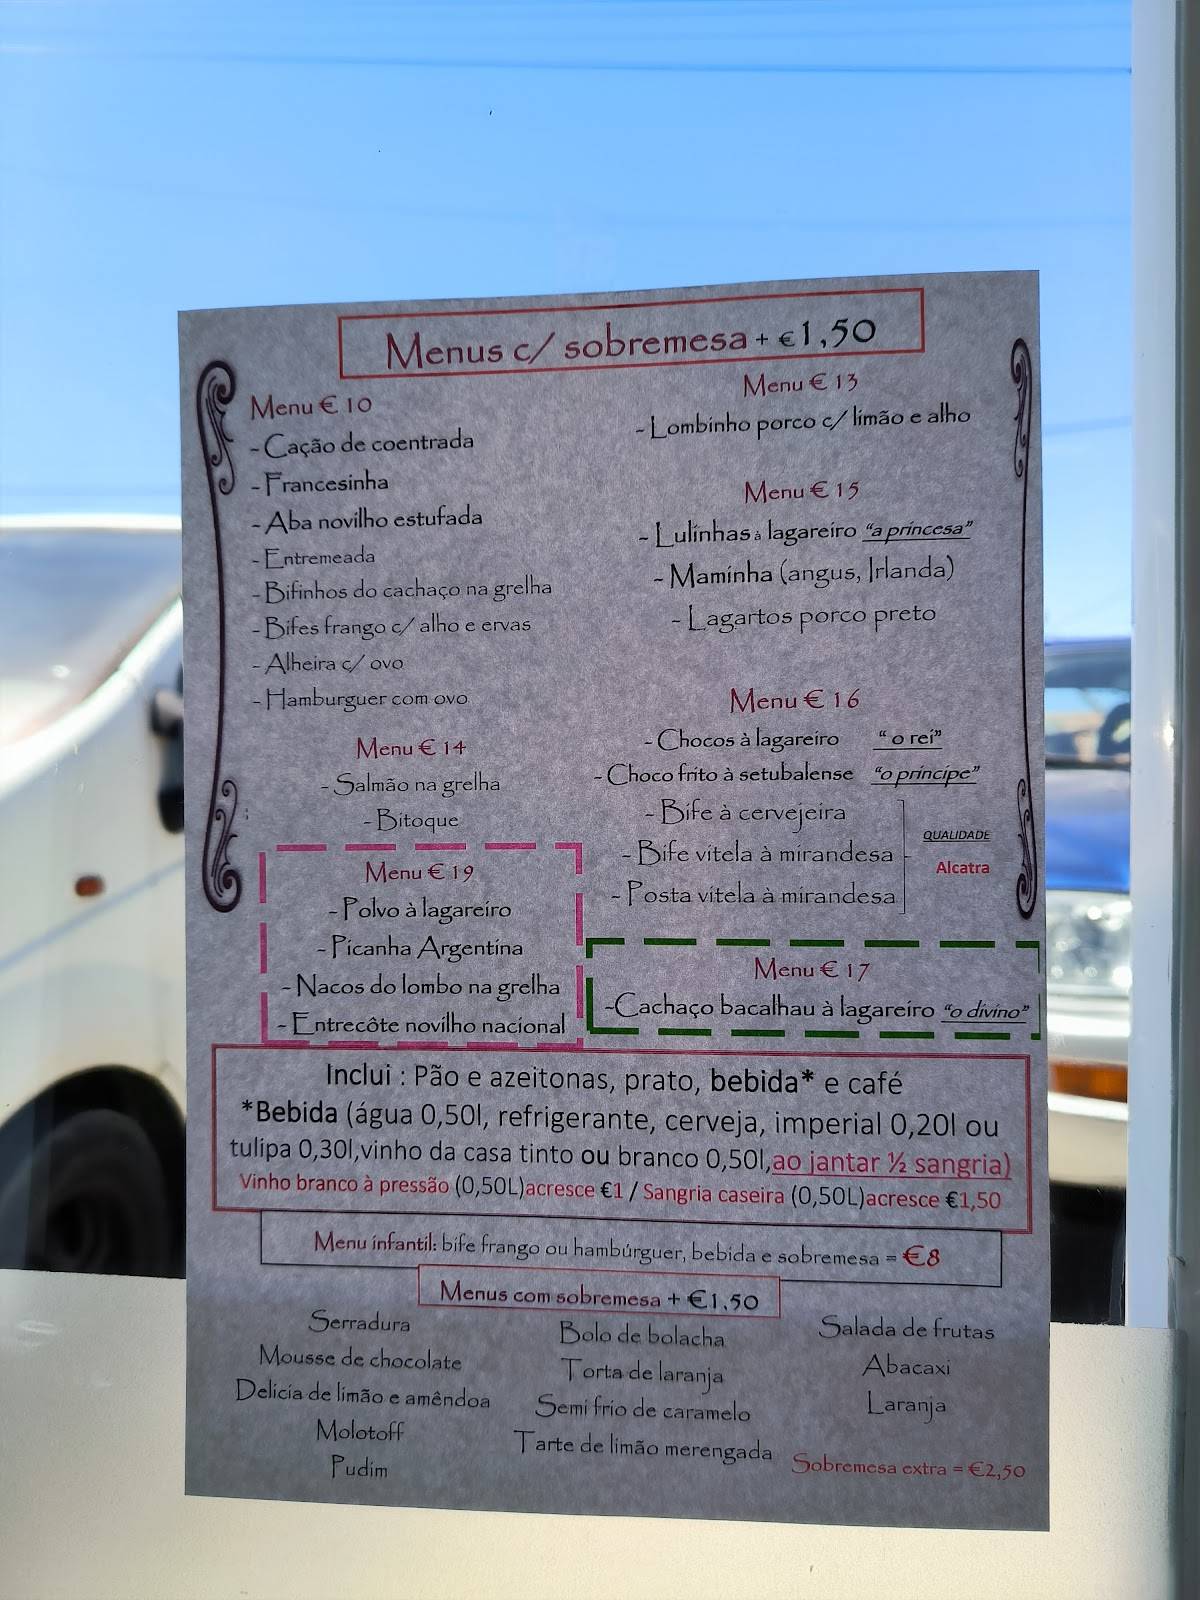 Menus c/ sobremesa + €1,50
Menu € 10
- Cação de coentrada
- Francesinha
- Aba novilho estufada
- Entremeada
- Bifinhos do cachaço na grelha
- Bifes frango c/ alho e ervas
- Alheira c/ ovo
- Hamburguer com ovo
Menu € 14
- Salmão na grelha
- Bitoque
Menu € 19
- Polvo à lagareiro
- Picanha Argentina
- Nacos do lombo na grelha
- Entrecôte novilho nacional
Menu € 13
- Lombinho porco c/ limão e alho
Menu € 15
- Lulinhas à lagareiro "a princesa"
- Maminha (angus, Irlanda)
- Lagartos porco preto
Menu € 16
- Chocos à lagareiro " o rei"
- Choco frito à setubalense "o príncipe"
- Bife à cervejeira
- Bife vitela à mirandesa
- Posta vitela à mirandesa
QUALIDADE
Alcatra
Menu € 17
-Cachaço bacalhau à lagareiro "o divino"
Inclui : Pão e azeitonas, prato, bebida* e café
*Bebida (água 0,50l, refrigerante, cerveja, imperial 0,20l ou
tulipa 0,30l,vinho da casa tinto ou branco 0,50l,ao jantar ½ sangria)
Vinho branco à pressão (0,50L)acresce €1 / Sangria caseira (0,50L)acresce €1,50
Menu infantil: bife frango ou hambúrguer, bebida e sobremesa = €8
Menus com sobremesa + €1,50
Serradura
Mousse de chocolate
Delicia de limão e amêndoa
Molotoff
Pudim
Bolo de bolacha
Torta de laranja
Semi frio de caramelo
Tarte de limão merengada
Salada de frutas
Abacaxi
Laranja
Sobremesa extra = €2,50